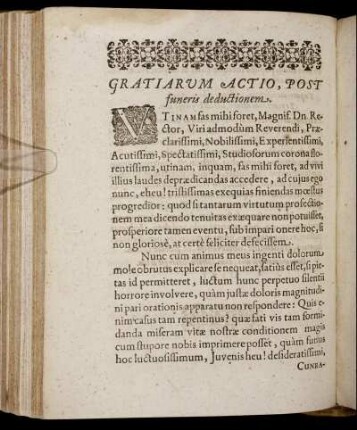 GRATIARUM ACTIO, POST
funeris deductionem.
VTINAM fas mihi foret, Magnif. Dn. Re-
ctor, Viri admodùm Reverendi, Præ-
clarissimi, Nobilissimi, Experientissimi,
Acutissimi, Spectatissimi, Studiosorum corona flo-
rentissima, utinam, inquam, fas mihi foret, ad vivi
illius laudes deprædicandas accedere, ad cujus ego
nunc, eheu! tristissimas exequias finiendas mœstus
progredior: quod si tantarum virtutum profectio-
nem mea dicendo tenuitas exæquare non potuisset,
prosperiore tamen eventu, sub impari onere hoc, si
non gloriosè, at certè feliciter defecissem.
Nunc cum animus meus ingenti dolorum
mole obrutus explicare se nequeat, satiùs esset, si pie-
tas id permitteret, luctum hunc perpetuo silentii
horrore involvere, quàm justæ doloris magnitudi-
ni pari orationis apparatu non respondere: Quis e-
nim casus tam repentinus? quæ fati vis tam formi-
danda miseram vitæ nostræ conditionem magis
cum stupore nobis imprimere posset, quàm funus
hoc luctuosissimum, Juvenis heu! desideratissimi,
CUNRA-